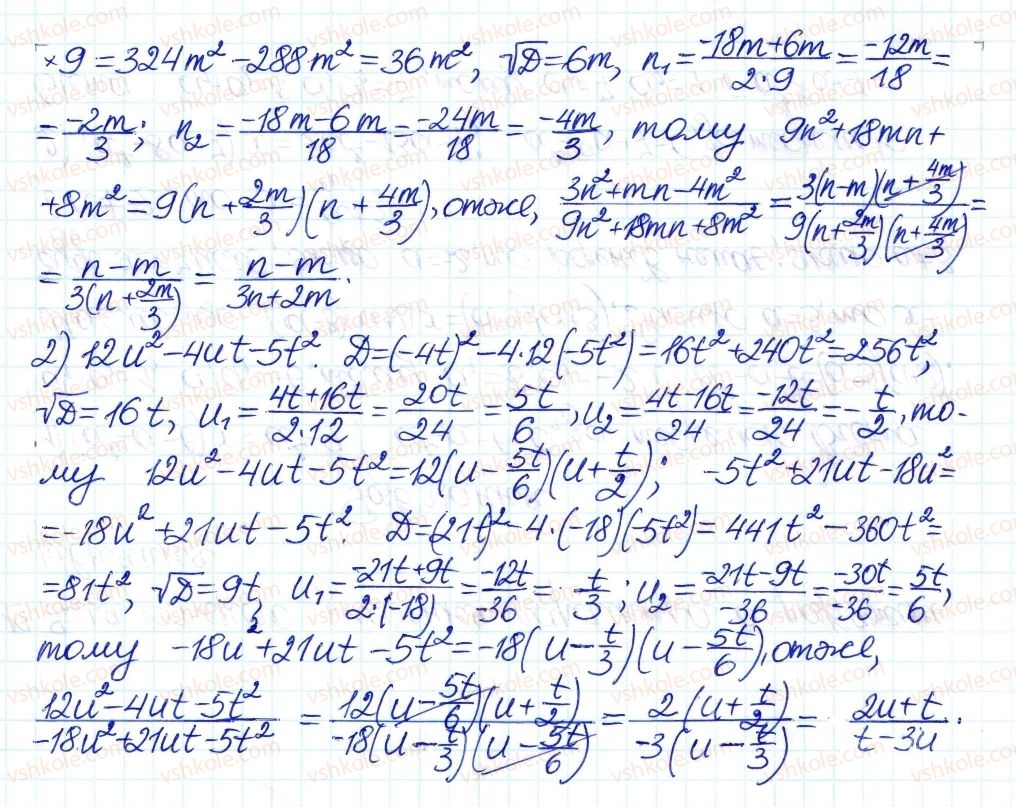 × 9 = 324m² − 288m² = 36m², √D = 6m, n₁ = (−18m+6m)/(2·9) = (−12m)/18 =
= (−2m)/3; n₂ = (−18m−6m)/18 = (−24m)/18 = (−4m)/3, тому 9n²+18mn+
+8m² = 9(n + 2m/3)(n + 4m/3), отже, (3n²+mn−4m²)/(9n²+18mn+8m²) = 3(n−m)(n + 4m/3)/9(n + 2m/3)(n + 4m/3) =
= (n−m)/3(n + 2m/3) = (n−m)/(3n+2m).
2) 12u² − 4ut − 5t². D = (−4t)² − 4·12(−5t²) = 16t² + 240t² = 256t²,
√D = 16t, u₁ = (4t+16t)/(2·12) = 20t/24 = 5t/6, u₂ = (4t−16t)/24 = (−12t)/24 = −t/2, то-
му 12u² − 4ut − 5t² = 12(u − 5t/6)(u + t/2); −5t² + 21ut − 18u² =
= −18u² + 21ut − 5t². D = (21t)² − 4·(−18)(−5t²) = 441t² − 360t² =
= 81t², √D = 9t, u₁ = (−21t+9t)/(2·(−18)) = (−12t)/(−36) = t/3; u₂ = (−21t−9t)/(−36) = (−30t)/(−36) = 5t/6,
тому −18u² + 21ut − 5t² = −18(u − t/3)(u − 5t/6), отже,
(12u² − 4ut − 5t²)/(−18u² + 21ut − 5t²) = 12(u − 5t/6)(u + t/2)/−18(u − t/3)(u − 5t/6) = 2(u + t/2)/−3(u − t/3) = (2u+t)/(t−3u).
vshkole.com